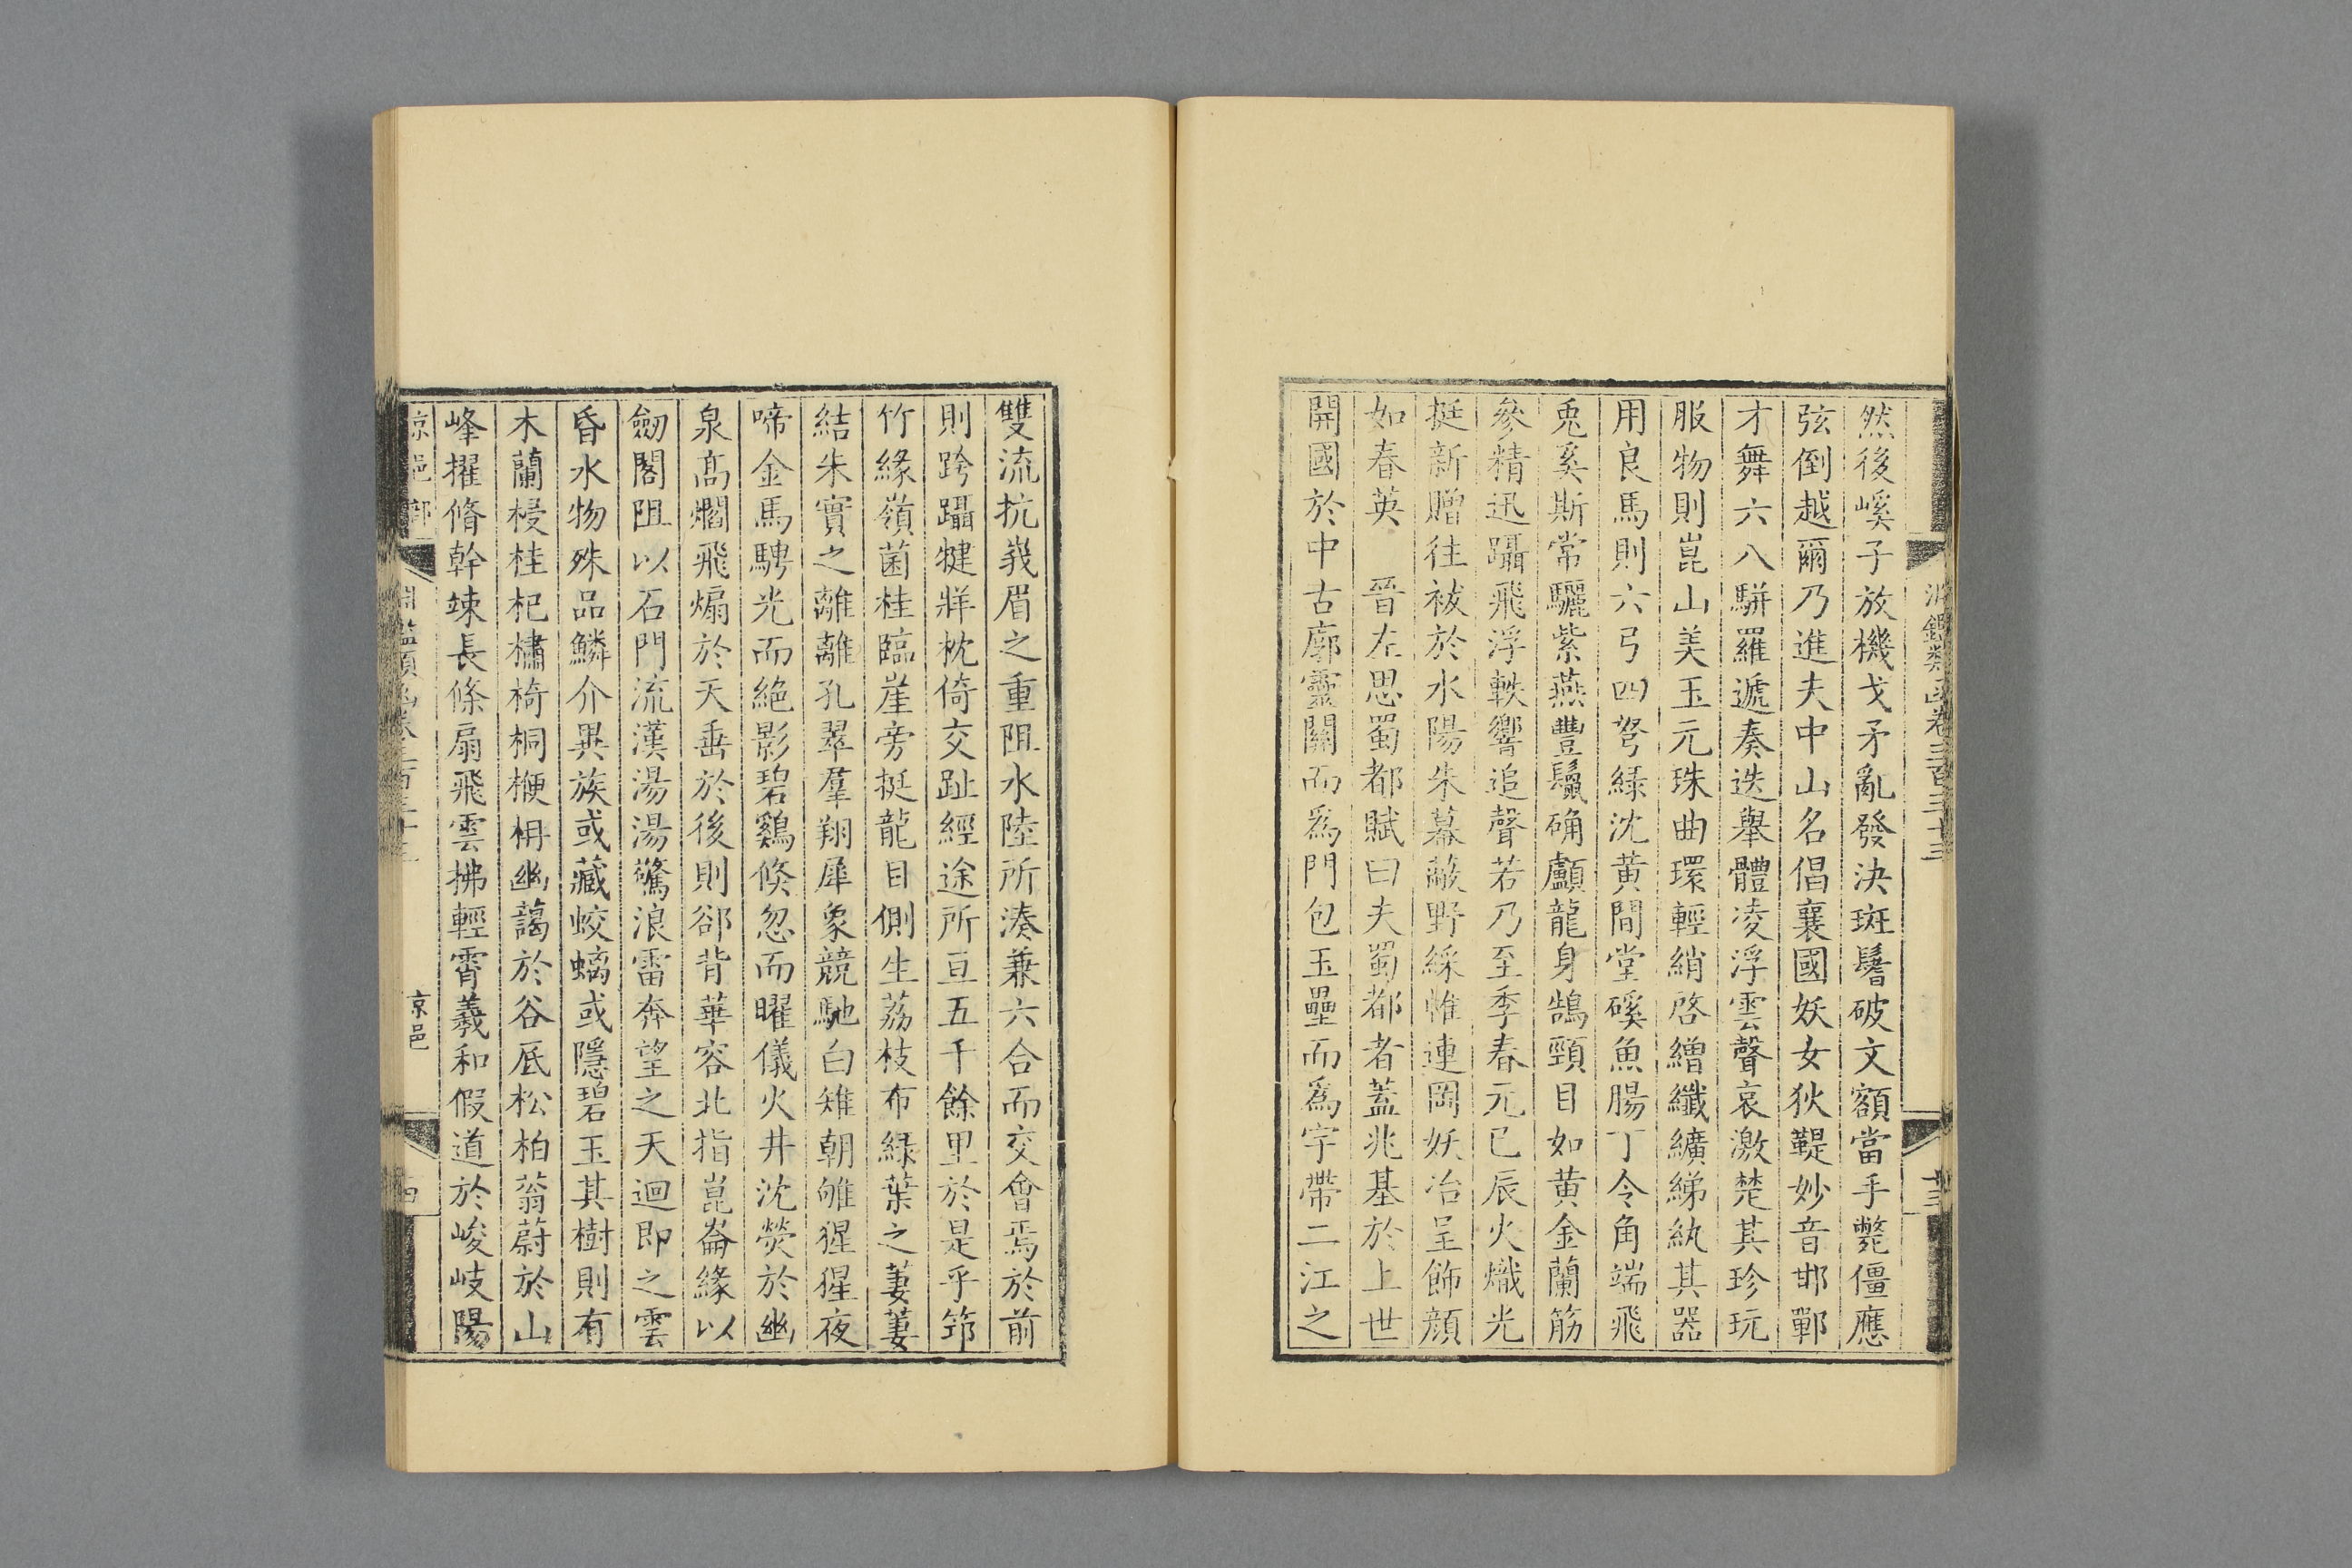 淵鑑類函卷三百三十三
十三
然後嵠子放機戈矛亂發決斑鬐破文額當手斃僵應
弦倒越爾乃進夫中山名倡襄國妖女狄鞮妙音邯鄲
才舞六八駢羅遞奏迭舉體凌浮雲聲哀激楚其珍玩
服物則崑山美玉元珠曲環輕綃啓繒纖纊綈紈其器
用良馬則六弓四弩綠沈黃間堂磎魚腸丁令角端飛
兎奚斯常驪紫燕豐鬛确顱龍身鵠頸目如黃金蘭筋
參精迅躡飛浮軼響追聲若乃至季春元巳辰火熾光
挺新贈往祓於水陽朱幕蔽野綵帷連岡妖冶呈飾顏
如春英　晉左思蜀都賦曰夫蜀都者蓋兆基於上世
開國於中古廓靈關而爲門包玉壘而爲宇帶二江之
雙流抗峩眉之重阻水陸所湊兼六合而交會焉於前
則跨躡犍牂枕倚交趾經途所亘五千餘里於是乎筇
竹緣嶺菌桂臨崖旁挺龍目側生荔枝布綠葉之萋萋
結朱實之離離孔翠羣翔犀象競馳白雉朝雊猩猩夜
啼金馬騁光而絕影碧鷄倐忽而曜儀火井沈熒於幽
泉高爓飛煽於天垂於後則郤背華容北指崑崙緣以
劒閣阻以石門流漢湯湯驚浪雷奔望之天迴即之雲
昏水物殊品鱗介異族或藏蛟螭或隱碧玉其樹則有
木蘭梫桂杞櫹椅桐楩枏幽藹於谷底松柏蓊蔚於山
峰擢脩幹竦長條扇飛雲拂輕霄羲和假道於峻岐陽
京邑部
京邑